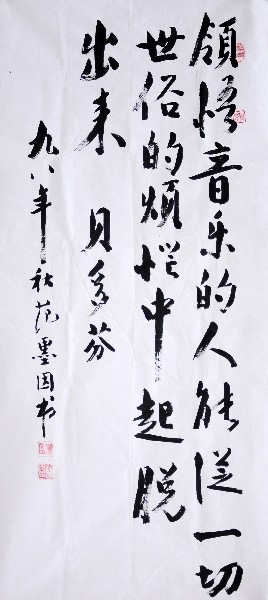 领悟音乐的人能从一切
世俗的烦恼中起脱
出来 贝多芬
九八年秋范墨因书